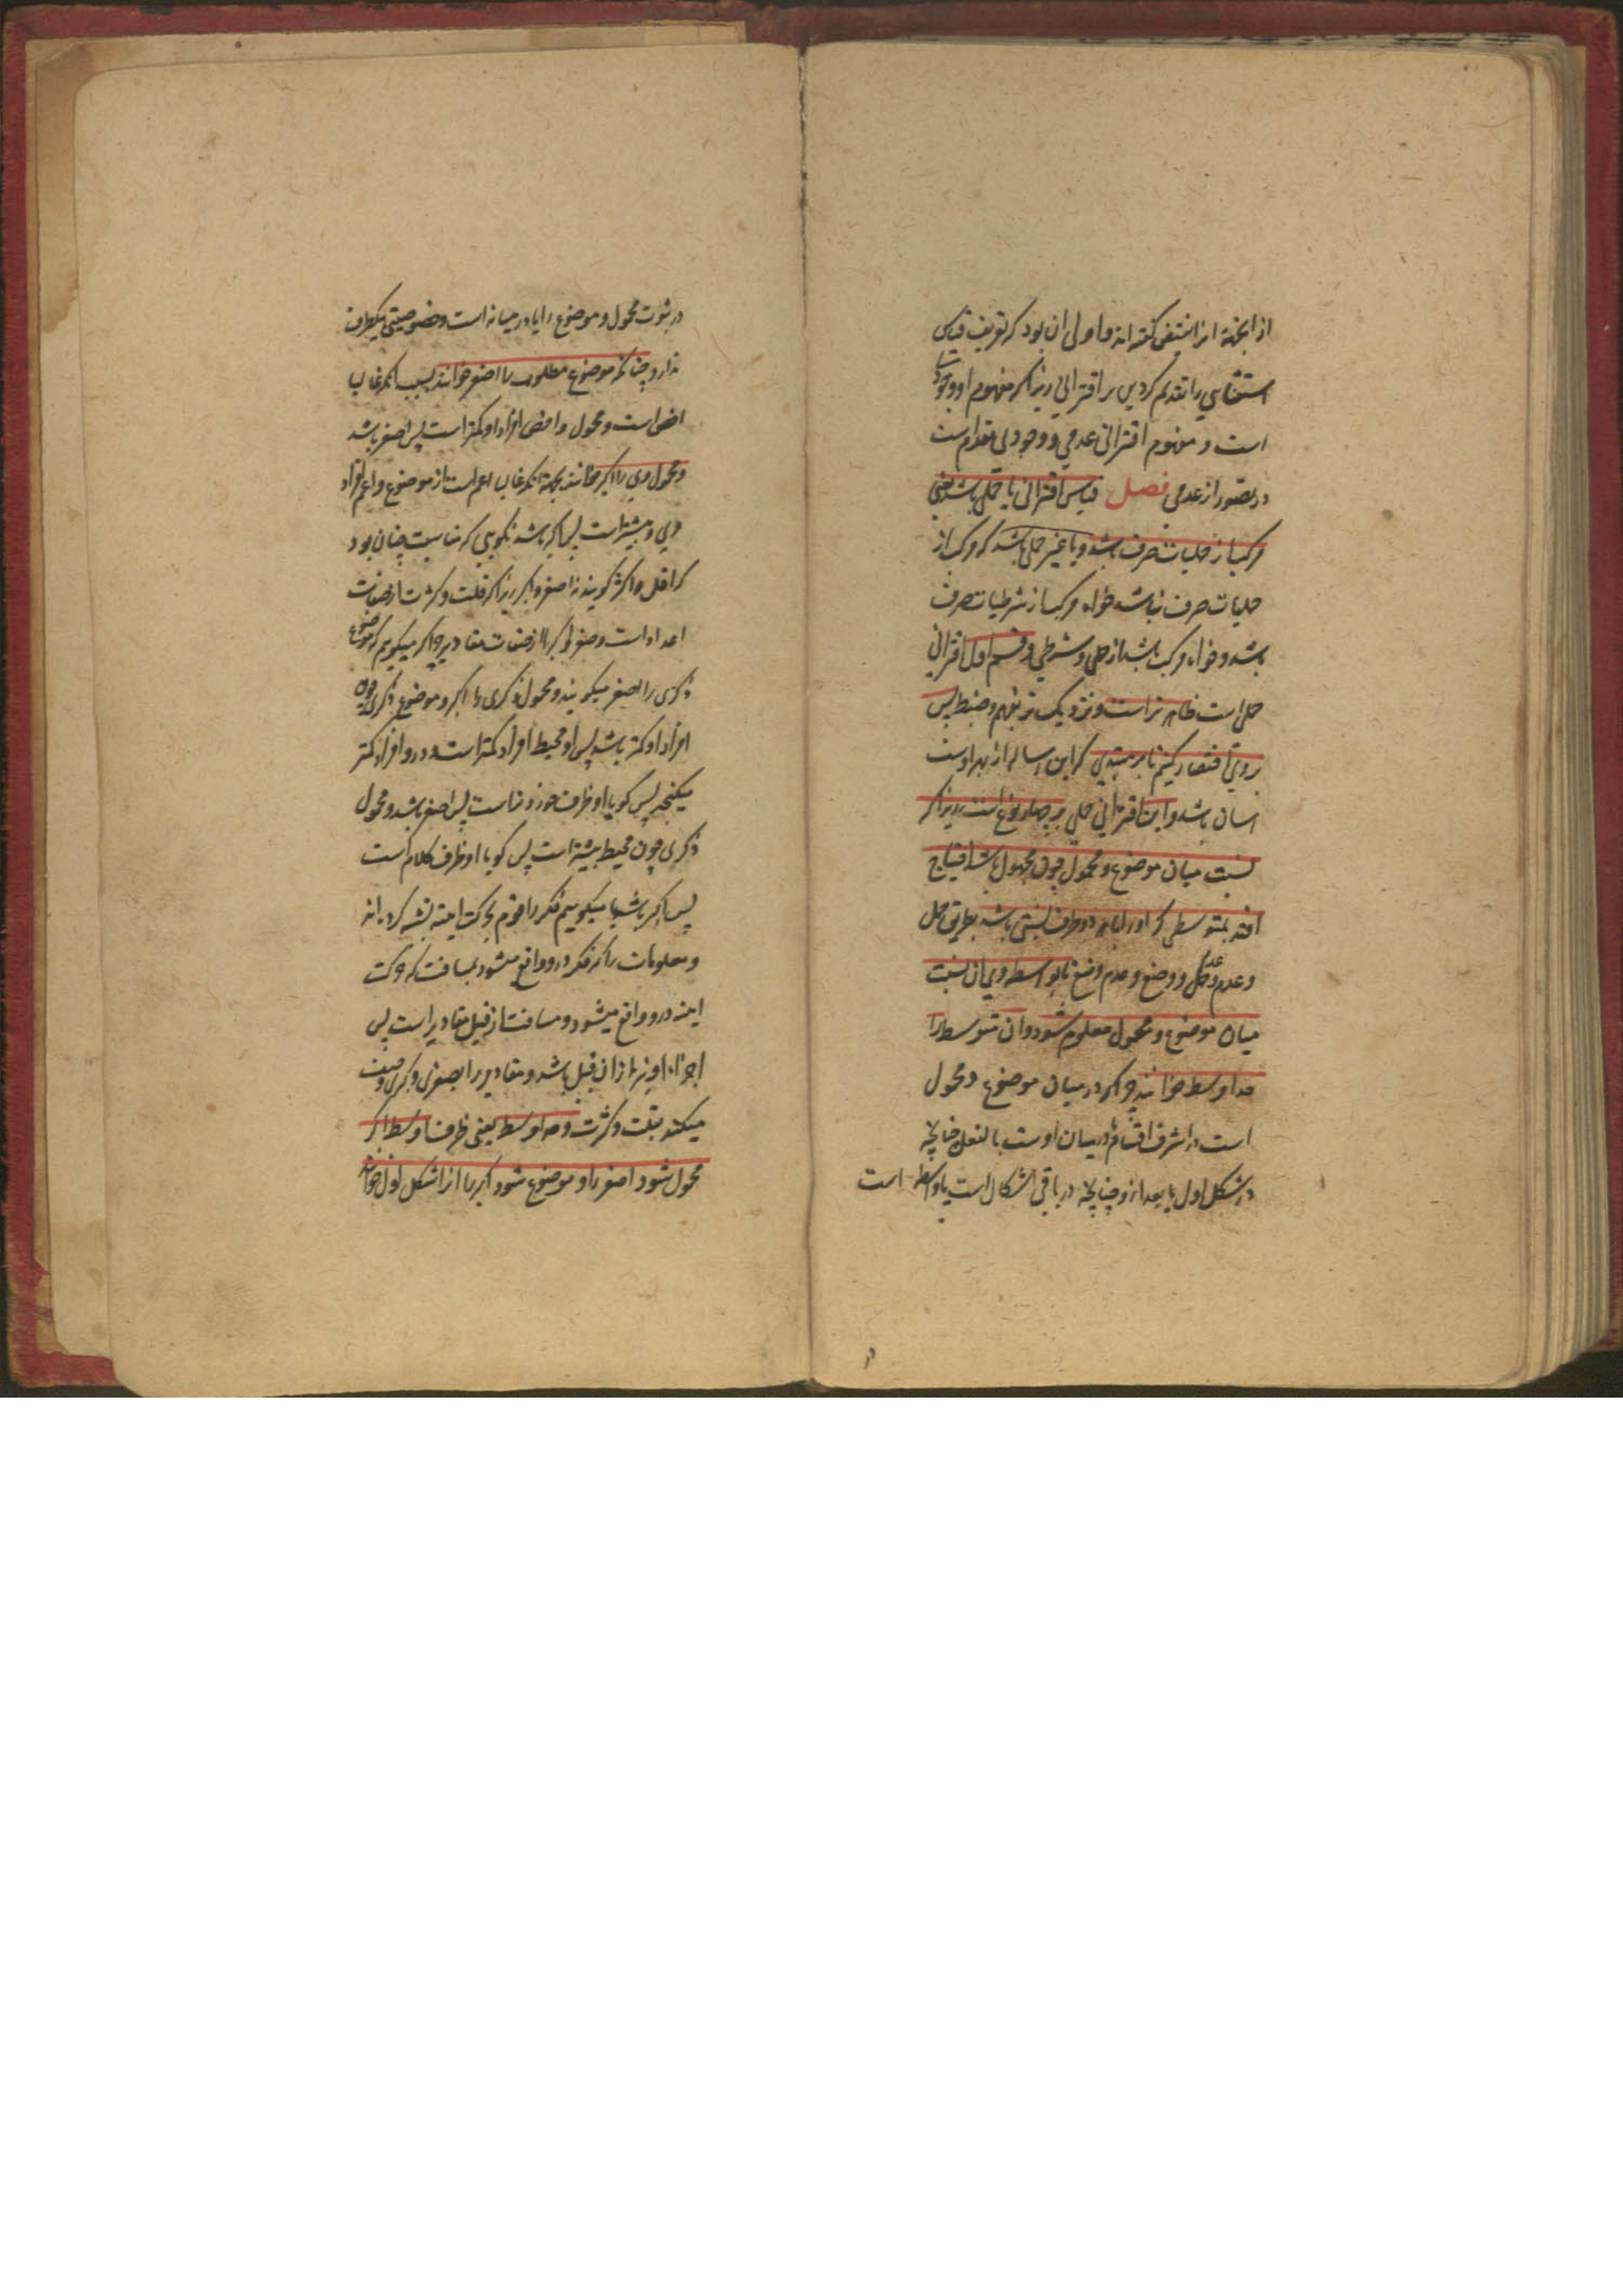 از اینجهة انرا مقتضی گفته اند و اولی ان بود که تعریف قیاس
استثنایی را تقدیم کردیمی بر اقترانی زیرا که مفهوم او وجودیست
است و مفهوم اقترانی عدمی و وجودی مقدم است
در تصور از عدمی فصل قیاس اقترانی یا حملی باشد یعنی
مرکب از حملیات صرف باشد و یا غیر حملی باشد که مرکب از
حملیات صرف نباشد خواه مرکب از شرطیات صرف
باشد و خواه مرکب باشد از حملی و شرطی و قسم اول اقترانی
حملی است ظاهر تر است و نزدیک تر بفهم و ضبط پس
بروی اقتصار کنیم تا بر مبتدی که این رساله از بهر اوست
اسان باشد و این اقترانی حملی بر چهار نوع است زیرا که
نسبت میان موضوع و محمول چون مجهول باشد احتیاج
افتد بمتوسطی که او را با هر دو طرف نسبتی باشد بطریق حمل
و عدم حمل و وضع و عدم وضع تا بواسطه وی ان نسبت
میان موضوع و محمول معلوم شود و ان متوسط را
حد اوسط خوانند چرا که در میان موضوع و محمول
است در اشرف اقسام در میان اوست بالفعل چنانچه
در شکل اول یا بعد ازو چنانچه در باقی اشکال است یا واسطه است
در ثبوت محمول و موضوع را یا در میانه است و خصوصیتی بیکطرف
ندارد چنانکه موضوع مطلوب را اصغر خوانند بسبب انکه غالبا
اخص است و محمول و اخص افراد او کمتر است پس اصغر باشد
و محمول وی را اکبر خوانند بجهة انکه غالب اعم است از موضوع و اعم افراد
وی بیشتر است پس اکبر باشد نگویی که مناسب چنان بود
که اقل و اکثر گویند نه اصغر و اکبر زیرا که قلت و کثرت از صفات
اعداد است و صغر و کبر از صفات مقادیر چرا که میگوییم که موضوع
ذکری را اصغر میگویند و محمول ذکری را اکبر و موضوع ذکری چون
افراد او کمتر باشد پس او محیط افراد کمتر است و در و افراد کمتر
میگنجد پس گویا او ظرف خورد است پس اصغر باشد و محمول
ذکری چون محیط بیشتر است پس گویا او ظرف کلان است
پس اکبر باشد یا میگوییم فکر را قوم بحرکت اینیه تشبیه کرده اند
و معلومات را که فکر درو واقع میشود بمسافت که حرکت
اینیه درو واقع میشود و مسافت از قبیل مقادیر است پس
اجزاء او نیز از ان قبیل باشد و مقادیر را بصغری و کبری وصف
میکنند بقلت و کثرت و حد اوسط یعنی ظرف اوسط اگر
محمول شود اصغر را و موضوع شود اکبر را انرا شکل اول خوانند